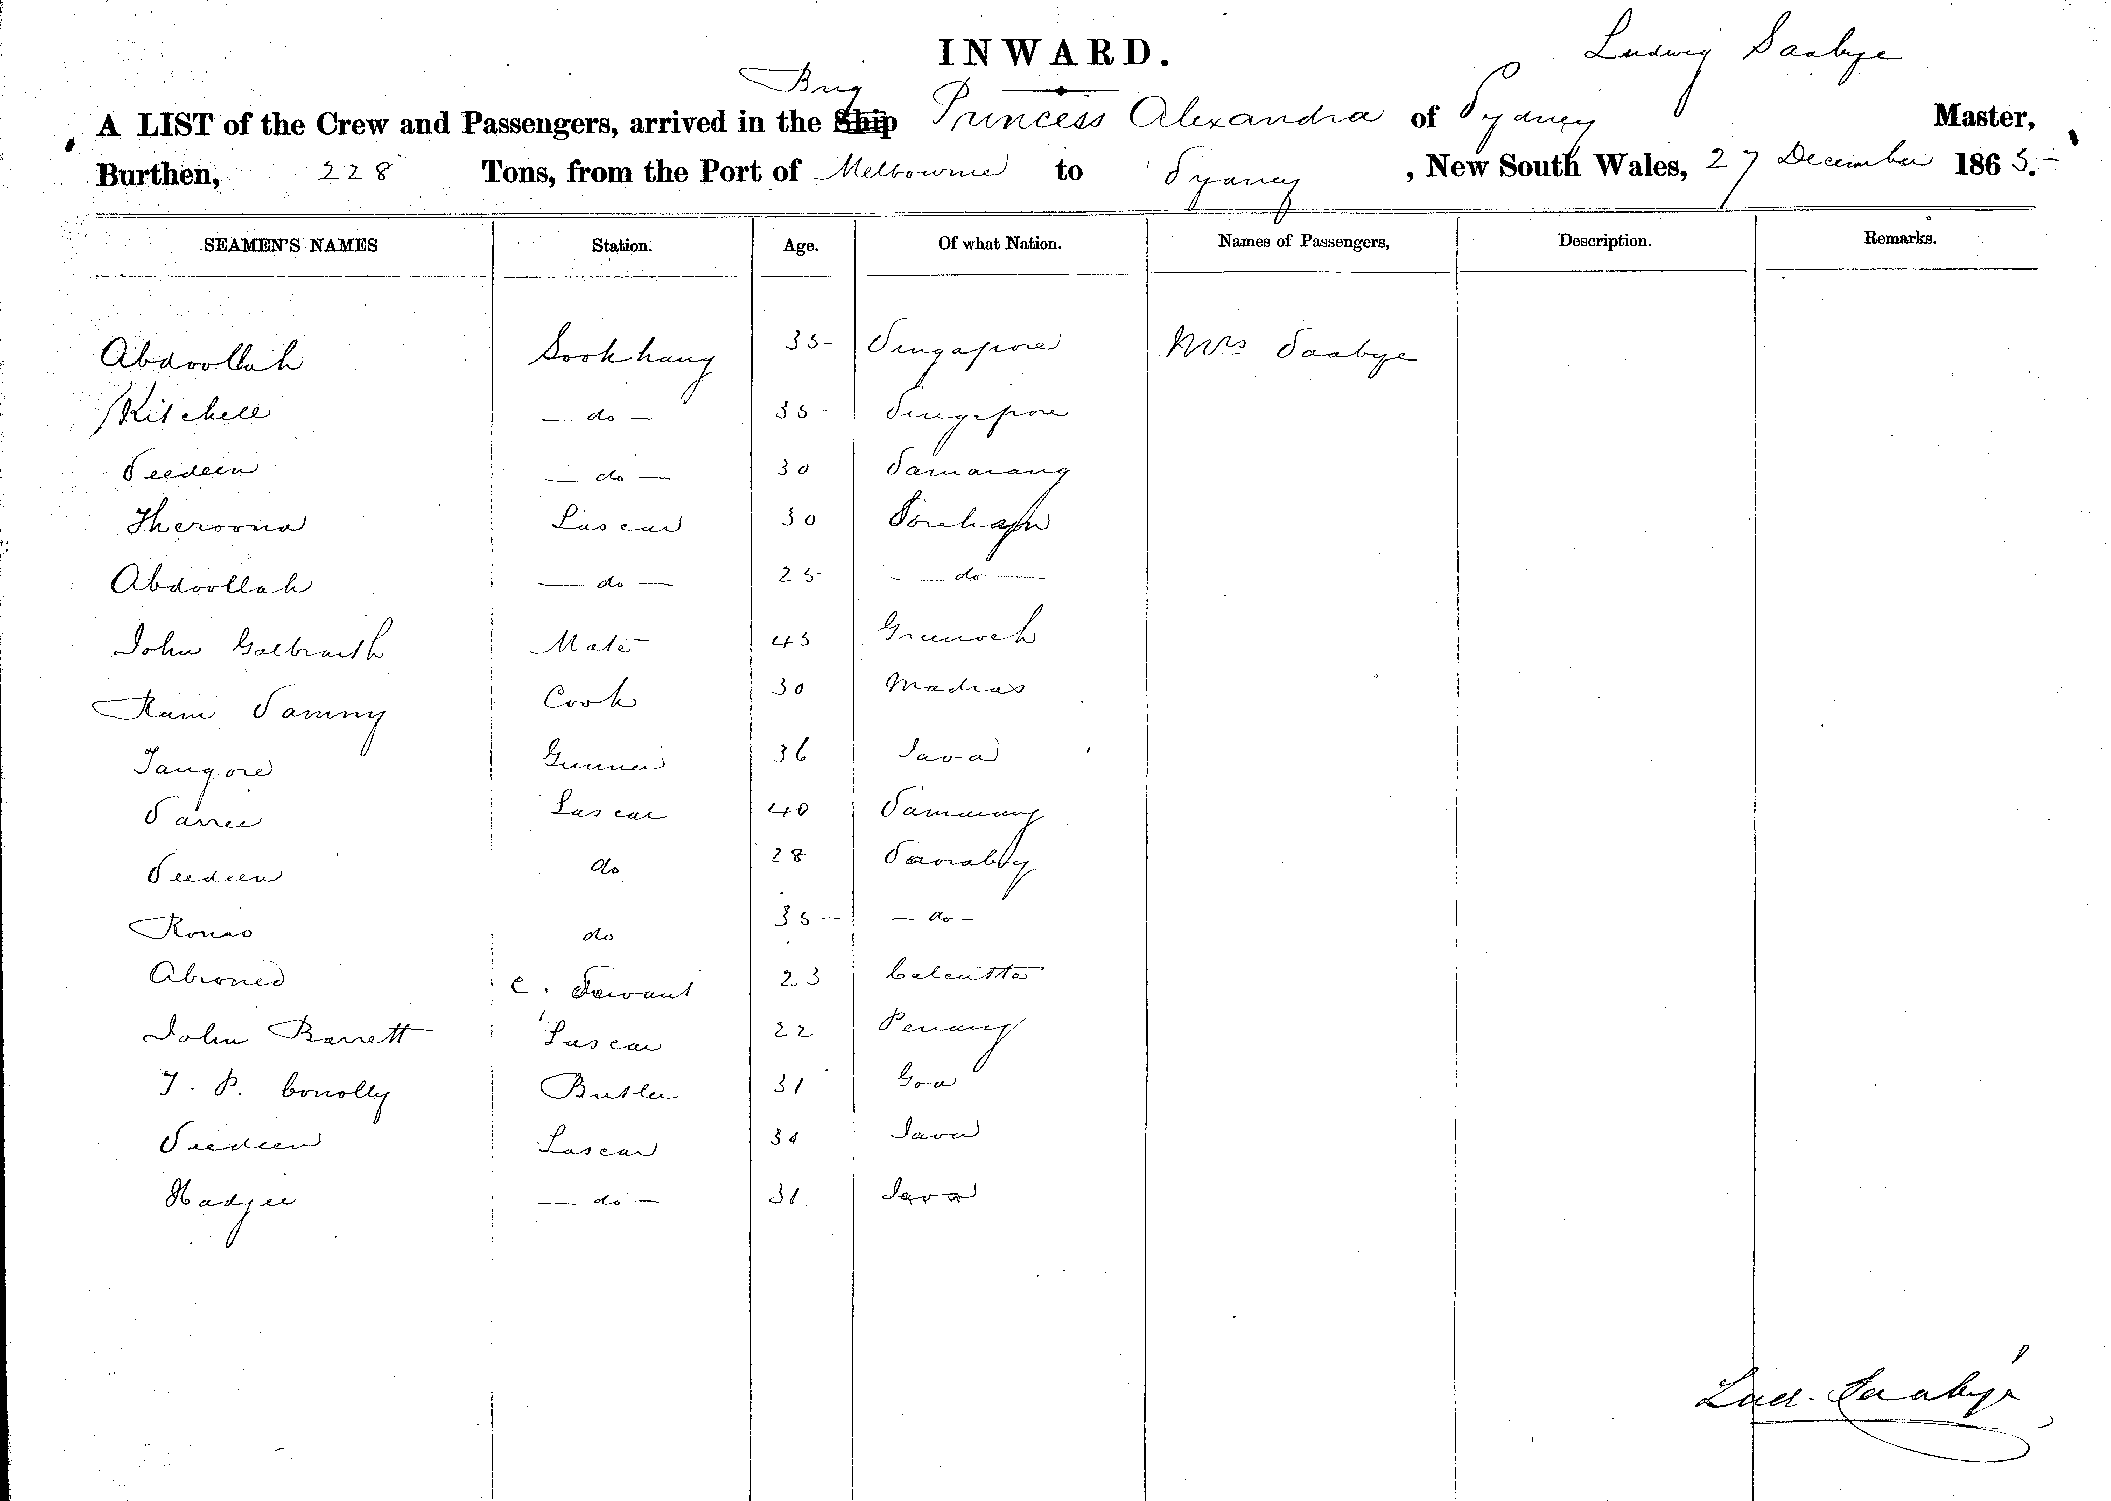 INWARD.
Ludwig Saabye
Brig
A LIST of the Crew and Passengers, arrived in the Ship Princess Alexandra of Sydney Master,
Burthen, 228 Tons, from the Port of Melbourne to Sydney, New South Wales, 27 December 1865.
SEAMEN'S NAMES Station. Age. Of what Nation. Names of Passengers, Description. Remarks.
Abdoollah 35 Singapore Mrs Saabye
Kitchell — do — 35 Singapore
Seedeen — do — 30 Samarang
Theroona Lascar 30
Abdoollah — do — 25 — do —
John Galbraith Mate 45 Greenock
Ram Sammy Cook 30 Madras
Tangore Gunner 36 Java
Sarree Lascar 40 Samarang
Seedeen do 28
do 35 — do —
C. Servant 23 Calcutta
John Barrett Lascar 22 Penang
T. P. Conolly Butler 31 Goa
Seedeen Lascar Java
Hadjee — do — 31 Java
Lud. Saabye